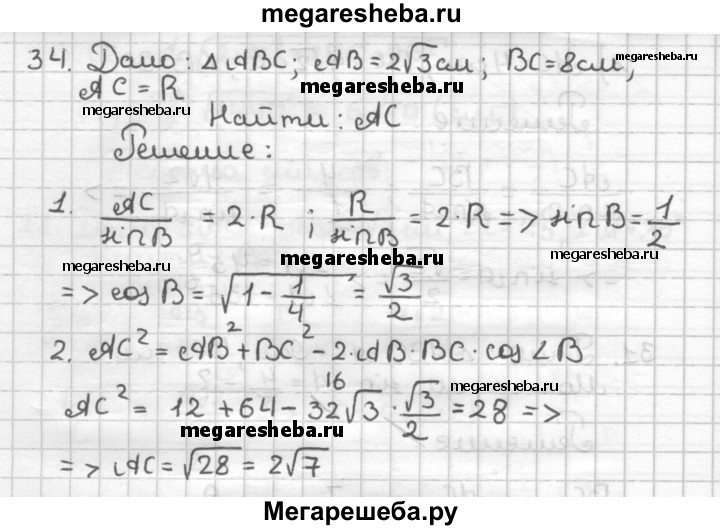 megaresheba.ru
34. Дано: ΔABC; AB = 2√3 см; BC = 8 см,
AC = R
megaresheba.ru
megaresheba.ru
Найти: AC
megaresheba.ru
Решение:
1. AC/sin B = 2·R ; R/sin B = 2·R => sin B = 1/2
megaresheba.ru
megaresheba.ru
megaresheba.ru
=> cos B = √(1 - 1/4) = √3/2
2. AC² = AB² + BC² - 2·AB·BC·cos∠B
16
megaresheba.ru
AC² = 12 + 64 - 32√3 · √3/2 = 28 =>
megaresheba.ru
megaresheba.ru
=> AC = √28 = 2√7
Мегарешеба.ру